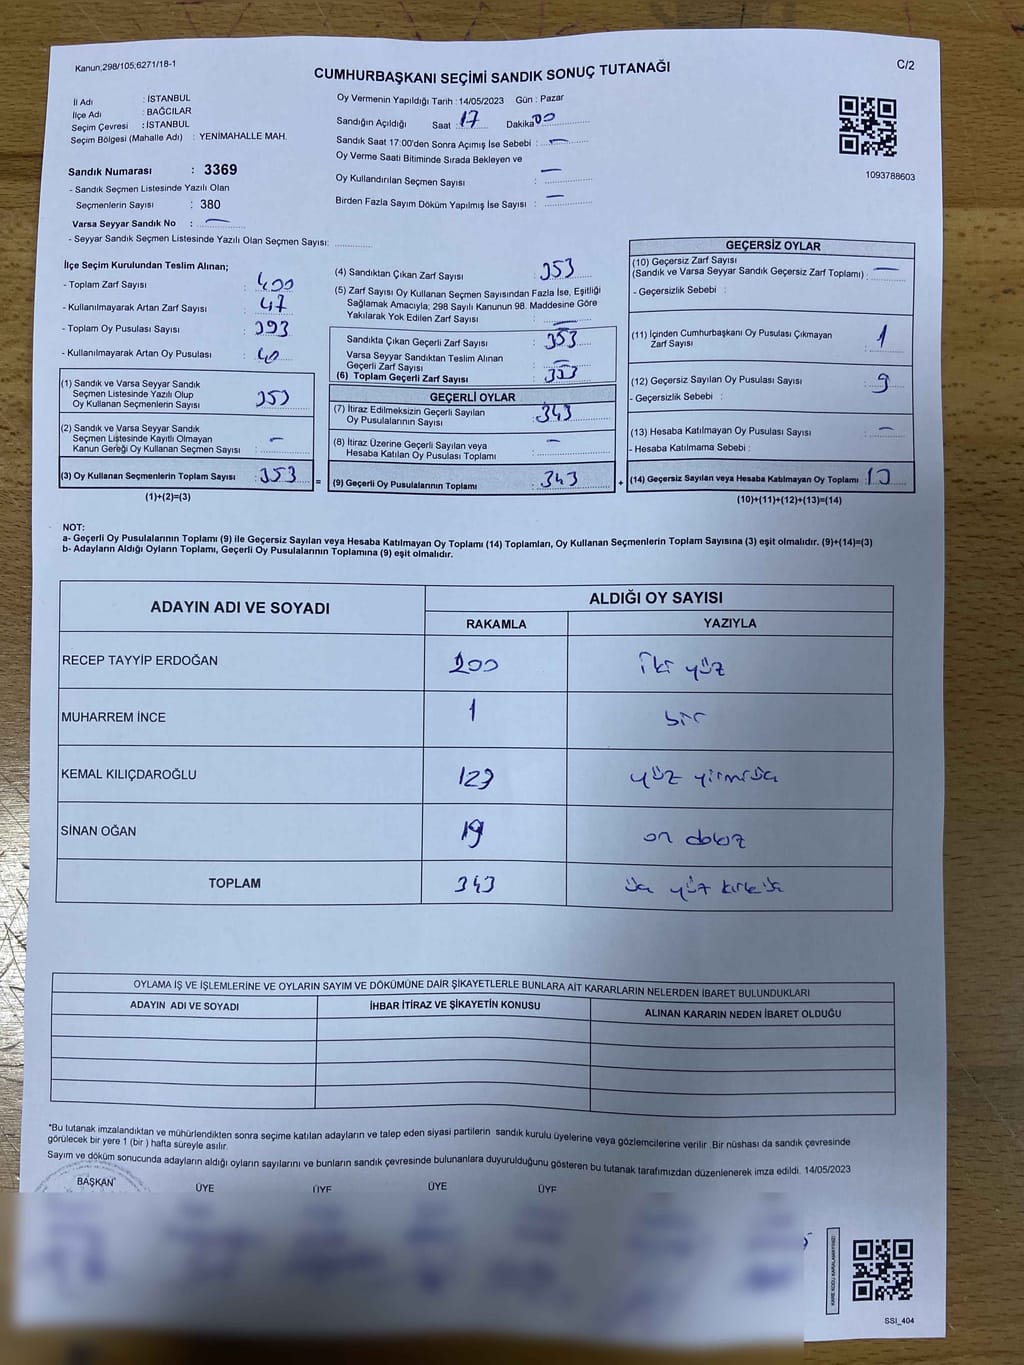 Kanun;298/105;6271/18-1
CUMHURBAŞKANI SEÇİMİ SANDIK SONUÇ TUTANAĞI
C/2
İl Adı : İSTANBUL
İlçe Adı : BAĞCILAR
Seçim Çevresi : İSTANBUL
Seçim Bölgesi (Mahalle Adı) : YENİMAHALLE MAH.
Sandık Numarası : 3369
- Sandık Seçmen Listesinde Yazılı Olan
Seçmenlerin Sayısı : 380
Varsa Seyyar Sandık No : —
- Seyyar Sandık Seçmen Listesinde Yazılı Olan Seçmen Sayısı:
Oy Vermenin Yapıldığı Tarih : 14/05/2023 Gün : Pazar
Sandığın Açıldığı Saat 17 Dakika 00
Sandık Saat 17:00'den Sonra Açımış İse Sebebi : —
Oy Verme Saati Bitiminde Sırada Bekleyen ve
Oy Kullandırılan Seçmen Sayısı : —
Birden Fazla Sayım Döküm Yapılmış İse Sayısı : —
1093788603
İlçe Seçim Kurulundan Teslim Alınan;
- Toplam Zarf Sayısı : 400
- Kullanılmayarak Artan Zarf Sayısı : 47
- Toplam Oy Pusulası Sayısı : 393
- Kullanılmayarak Artan Oy Pusulası : 40
(1) Sandık ve Varsa Seyyar Sandık
Seçmen Listesinde Yazılı Olup
Oy Kullanan Seçmenlerin Sayısı : 353
(2) Sandık ve Varsa Seyyar Sandık
Seçmen Listesinde Kayıtlı Olmayan
Kanun Gereği Oy Kullanan Seçmen Sayısı : —
(3) Oy Kullanan Seçmenlerin Toplam Sayısı : 353
(1)+(2)=(3)
=
(4) Sandıktan Çıkan Zarf Sayısı : 353
(5) Zarf Sayısı Oy Kullanan Seçmen Sayısından Fazla İse, Eşitliği
Sağlamak Amacıyla; 298 Sayılı Kanunun 98. Maddesine Göre
Yakılarak Yok Edilen Zarf Sayısı : —
Sandıkta Çıkan Geçerli Zarf Sayısı : 353
Varsa Seyyar Sandıktan Teslim Alınan
Geçerli Zarf Sayısı : —
(6) Toplam Geçerli Zarf Sayısı : 353
GEÇERLİ OYLAR
(7) İtiraz Edilmeksizin Geçerli Sayılan
Oy Pusulalarının Sayısı : 343
(8) İtiraz Üzerine Geçerli Sayılan veya
Hesaba Katılan Oy Pusulası Toplamı : —
(9) Geçerli Oy Pusulalarının Toplamı : 343
+
GEÇERSİZ OYLAR
(10) Geçersiz Zarf Sayısı
(Sandık ve Varsa Seyyar Sandık Geçersiz Zarf Toplamı) : —
- Geçersizlik Sebebi :
(11) İçinden Cumhurbaşkanı Oy Pusulası Çıkmayan
Zarf Sayısı : 1
(12) Geçersiz Sayılan Oy Pusulası Sayısı : 9
- Geçersizlik Sebebi :
(13) Hesaba Katılmayan Oy Pusulası Sayısı : —
- Hesaba Katılmama Sebebi :
(14) Geçersiz Sayılan veya Hesaba Katılmayan Oy Toplamı : 10
(10)+(11)+(12)+(13)=(14)
NOT:
a- Geçerli Oy Pusulalarının Toplamı (9) ile Geçersiz Sayılan veya Hesaba Katılmayan Oy Toplamı (14) Toplamları, Oy Kullanan Seçmenlerin Toplam Sayısına (3) eşit olmalıdır. (9)+(14)=(3)
b- Adayların Aldığı Oyların Toplamı, Geçerli Oy Pusulalarının Toplamına (9) eşit olmalıdır.
ADAYIN ADI VE SOYADI
ALDIĞI OY SAYISI
RAKAMLA YAZIYLA
RECEP TAYYİP ERDOĞAN 200 iki yüz
MUHARREM İNCE 1 bir
KEMAL KILIÇDAROĞLU 123 yüz yirmi üç
SİNAN OĞAN 19 on dokuz
TOPLAM 343 üç yüz kırk üç
OYLAMA İŞ VE İŞLEMLERİNE VE OYLARIN SAYIM VE DÖKÜMÜNE DAİR ŞİKAYETLERLE BUNLARA AİT KARARLARIN NELERDEN İBARET BULUNDUKLARI
ADAYIN ADI VE SOYADI İHBAR İTİRAZ VE ŞİKAYETİN KONUSU ALINAN KARARIN NEDEN İBARET OLDUĞU
*Bu tutanak imzalandıktan ve mühürlendikten sonra seçime katılan adayların ve talep eden siyasi partilerin sandık kurulu üyelerine veya gözlemcilerine verilir .Bir nüshası da sandık çevresinde
görülecek bir yere 1 (bir ) hafta süreyle asılır.
Sayım ve döküm sonucunda adayların aldığı oyların sayılarını ve bunların sandık çevresinde bulunanlara duyurulduğunu gösteren bu tutanak tarafımızdan düzenlenerek imza edildi. 14/05/2023
BAŞKAN ÜYE ÜYE ÜYE ÜYE
KARE KODU KARALAMAYINIZ!
SSI_404